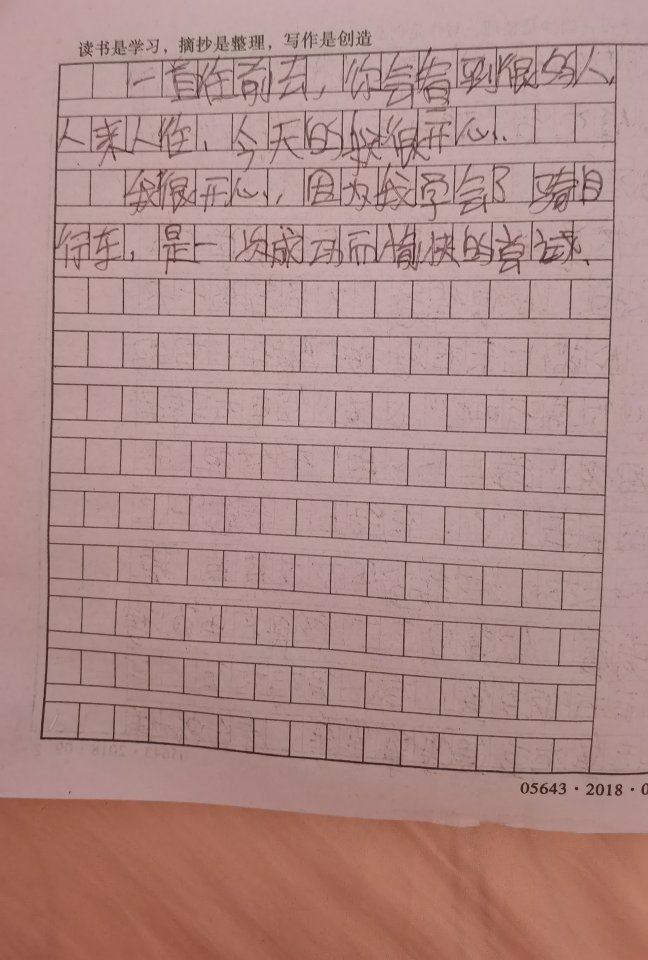 读书是学习，摘抄是整理，写作是创造
一直往前去，你会看到很多人，
人来人往，今天的我很开心，
我很开心，因为我学会了骑自
行车，是一次成功而愉快的尝试、
05643·2018·0